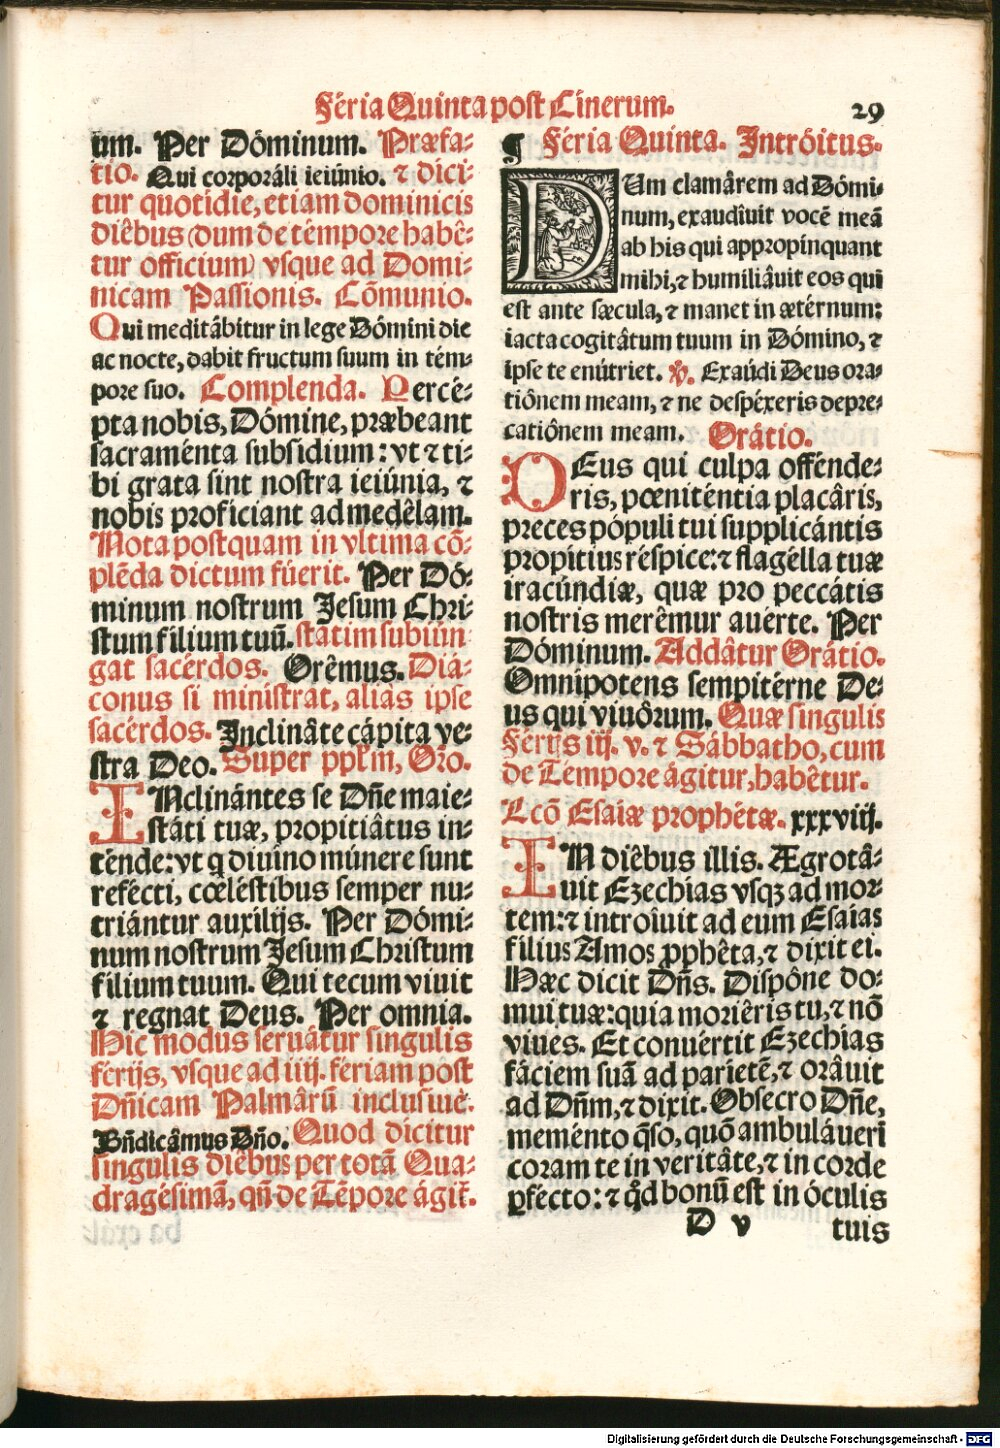 Féria Quinta post Cinerum.
29
um. Per Dóminum. Præfa-
tio. Qui corporáli ieiúnio. ⁊ dici-
tur quotídie, etiam dominicis
diêbus (dum de témpore habê-
tur ôfficium) vsque ad Domi-
nicam Passionis. Cõmunio.
Qui meditábitur in lege Dómini die
ac nocte, dabit fructum suum in tém-
pore suo. Complenda. Percé-
pta nobis, Dómine, præbeant
sacraménta subsídium: vt ⁊ ti-
bi grata sint nostra ieiúnia, ⁊
nobis proficiant ad medêlam.
Nota postquam in vltima cõ-
plẽda dictum fúerit. Per Dó-
minum nostrum Jesum Chri-
stum filium tuũ. statim subiún
gat sacérdos. Orêmus. Diá-
conus si ministrat, aliàs ipse
sacérdos. Inclinâte cápita ve-
stra Deo. Super pplm̃, Orõ.
INclinántes se Dñe maie-
státi tuæ, propitiâtus in-
ténde: vt q diuíno múnere sunt
refécti, cœléstibus semper nu-
triántur auxilijs. Per Dómi-
num nostrum Jesum Christum
filium tuum. Qui tecum viuit
⁊ regnat Deus. Per omnia.
Hic modus seruátur singulis
férijs, vsque ad iiij. fériam pòst
Dñicam Palmârũ inclusiuè.
Bñdicâmus Dño. Quod dicitur
singulis diêbus per totã Qua-
dragésimã, qñ de Tẽpore ágit̃.
¶ Féria Quinta. Intróitus.
DUm clamârem ad Dómi-
num, exaudîuit vocẽ meã
ab his qui appropínquant
mihi, ⁊ humiliâuit eos qui
est ante sæcula, ⁊ manet in ætérnum:
iacta cogitâtum tuum in Dómino, ⁊
ipse te enútriet. ℣. Exaúdi Deus ora-
tiônem meam, ⁊ ne despéxeris depre-
catiônem meam. Orátio.
DEus qui culpa offénde-
ris, pœniténtia placâris,
preces pópuli tui supplicántis
propítius réspice: ⁊ flagélla tuæ
iracúndiæ, quæ pro peccátis
nostris merêmur auérte. Per
Dóminum. Addâtur Orátio.
Omnípotens sempitérne De-
us qui viuôrum. Quæ síngulis
Férijs iij. v. ⁊ Sábbatho, cum
de Témpore ágitur, habêtur.
Lcõ Esaiæ prophétæ. xxxviij.
IN diêbus illis. Ægrotâ-
uit Ezechias vsqꝫ ad mor-
tem: ⁊ introîuit ad eum Esaias
filius Amos ꝓphêta, ⁊ dixit ei.
Hæc dicit Dñs. Dispône do-
mui tuæ: quia moriêris tu, ⁊ nõ
viues. Et conuértit Ezechias
fáciem suã ad parietẽ, ⁊ orâuit
ad Dñm, ⁊ dixit. Obsecro Dñe,
meménto q̃so, quõ ambuláuerĩ
coram te in veritâte, ⁊ in corde
ꝑfécto: ⁊ qd bonũ est in óculis
D v
tuis
Digitalisierung gefördert durch die Deutsche Forschungsgemeinschaft - DFG